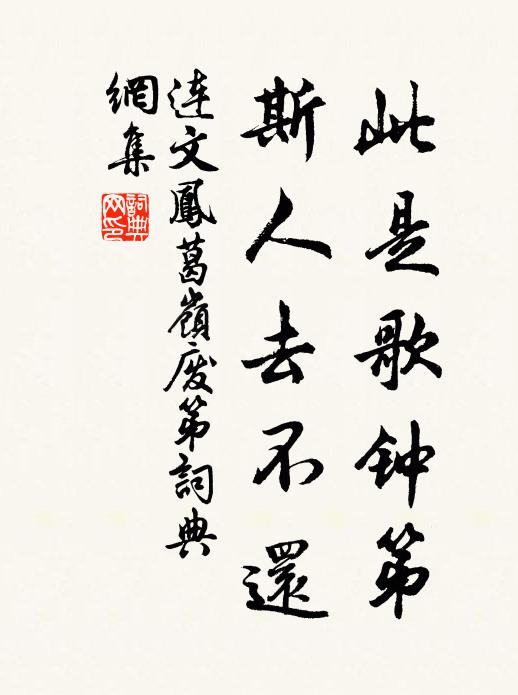 此是歌钟第
斯人去不還
连文鳳葛嶺废第詞典
網集
詞典
网印